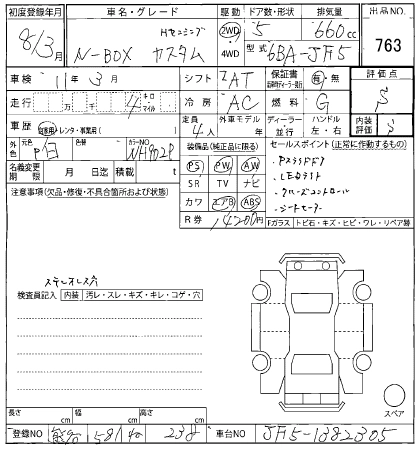 初度登録年月 車名・グレード 駆動 ドア数・形状 排気量 出品NO.
8/3月 N-BOX カスタム 2WD 4WD 5 660cc 763
型式 6BA-JF5
車検 1年3月 シフト IAT 保証書 有・無 評価点
走行 万 千 4 キロ マイル 冷房 AC 燃料 G 5
車歴 自家用・レンタ・事業用( ) 定員 4人 外車モデル 年 ディーラー 並行 ハンドル 左・右 内装評価 5
外色 元色 P白 色替 カラーNO NH902P 装備品(純正品に限る) セールスポイント(正常に作動するもの)
名義変更期限 月 日迄 積載 t PS PW AW
注意事項(欠品・修復・不具合箇所および状態) SR TV ナビ ・LEDライト
カワ エアB ABS ・クルーズコントロール
R券 14200円 ・シートヒーター
Fガラス トビ石・キズ・ヒビ・ワレ・リペア跡
ステレオレス穴
検査員記入 内装 汚レ・スレ・キズ・キレ・コゲ・穴
スペア
長さ cm 幅 cm 高さ cm
登録NO 581 238 車台NO JF5-1382305